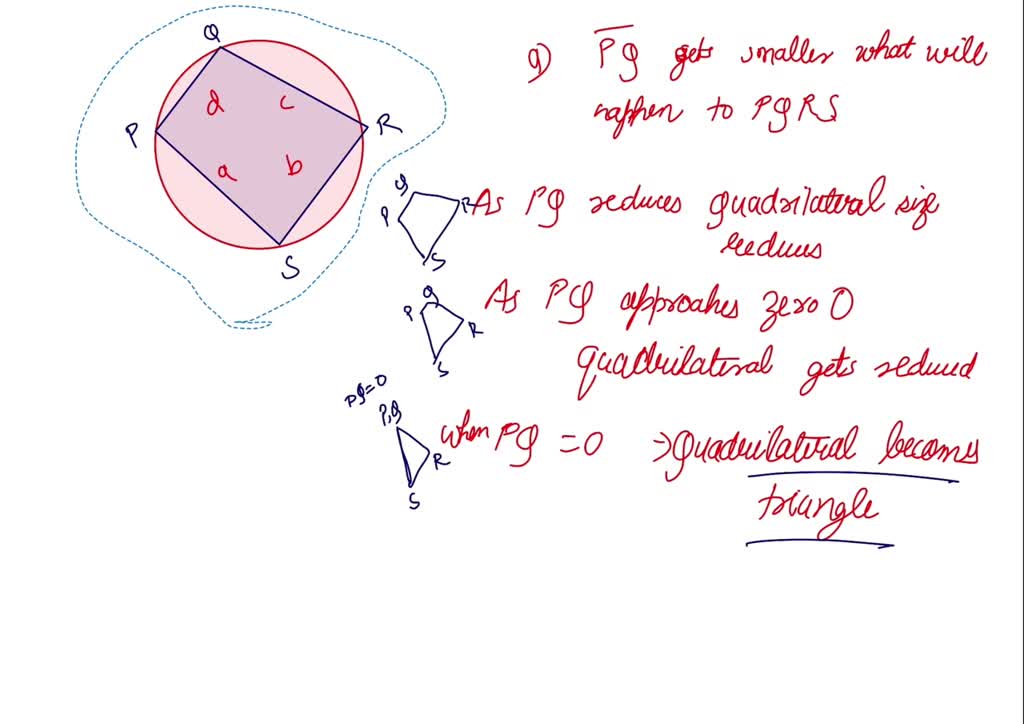 Q
P
R
S
d
c
a
b
a) PQ gets smaller what will
happen to PQRS
Q
P
R
S
As PQ reduces quadrilateral size
reduces
Q
P
R
S
As PQ approahes zero 0
quadrilateral gets reduced
PQ=0
P,Q
R
S
when PQ = 0 ⇒ quadrilateral becomes
triangle